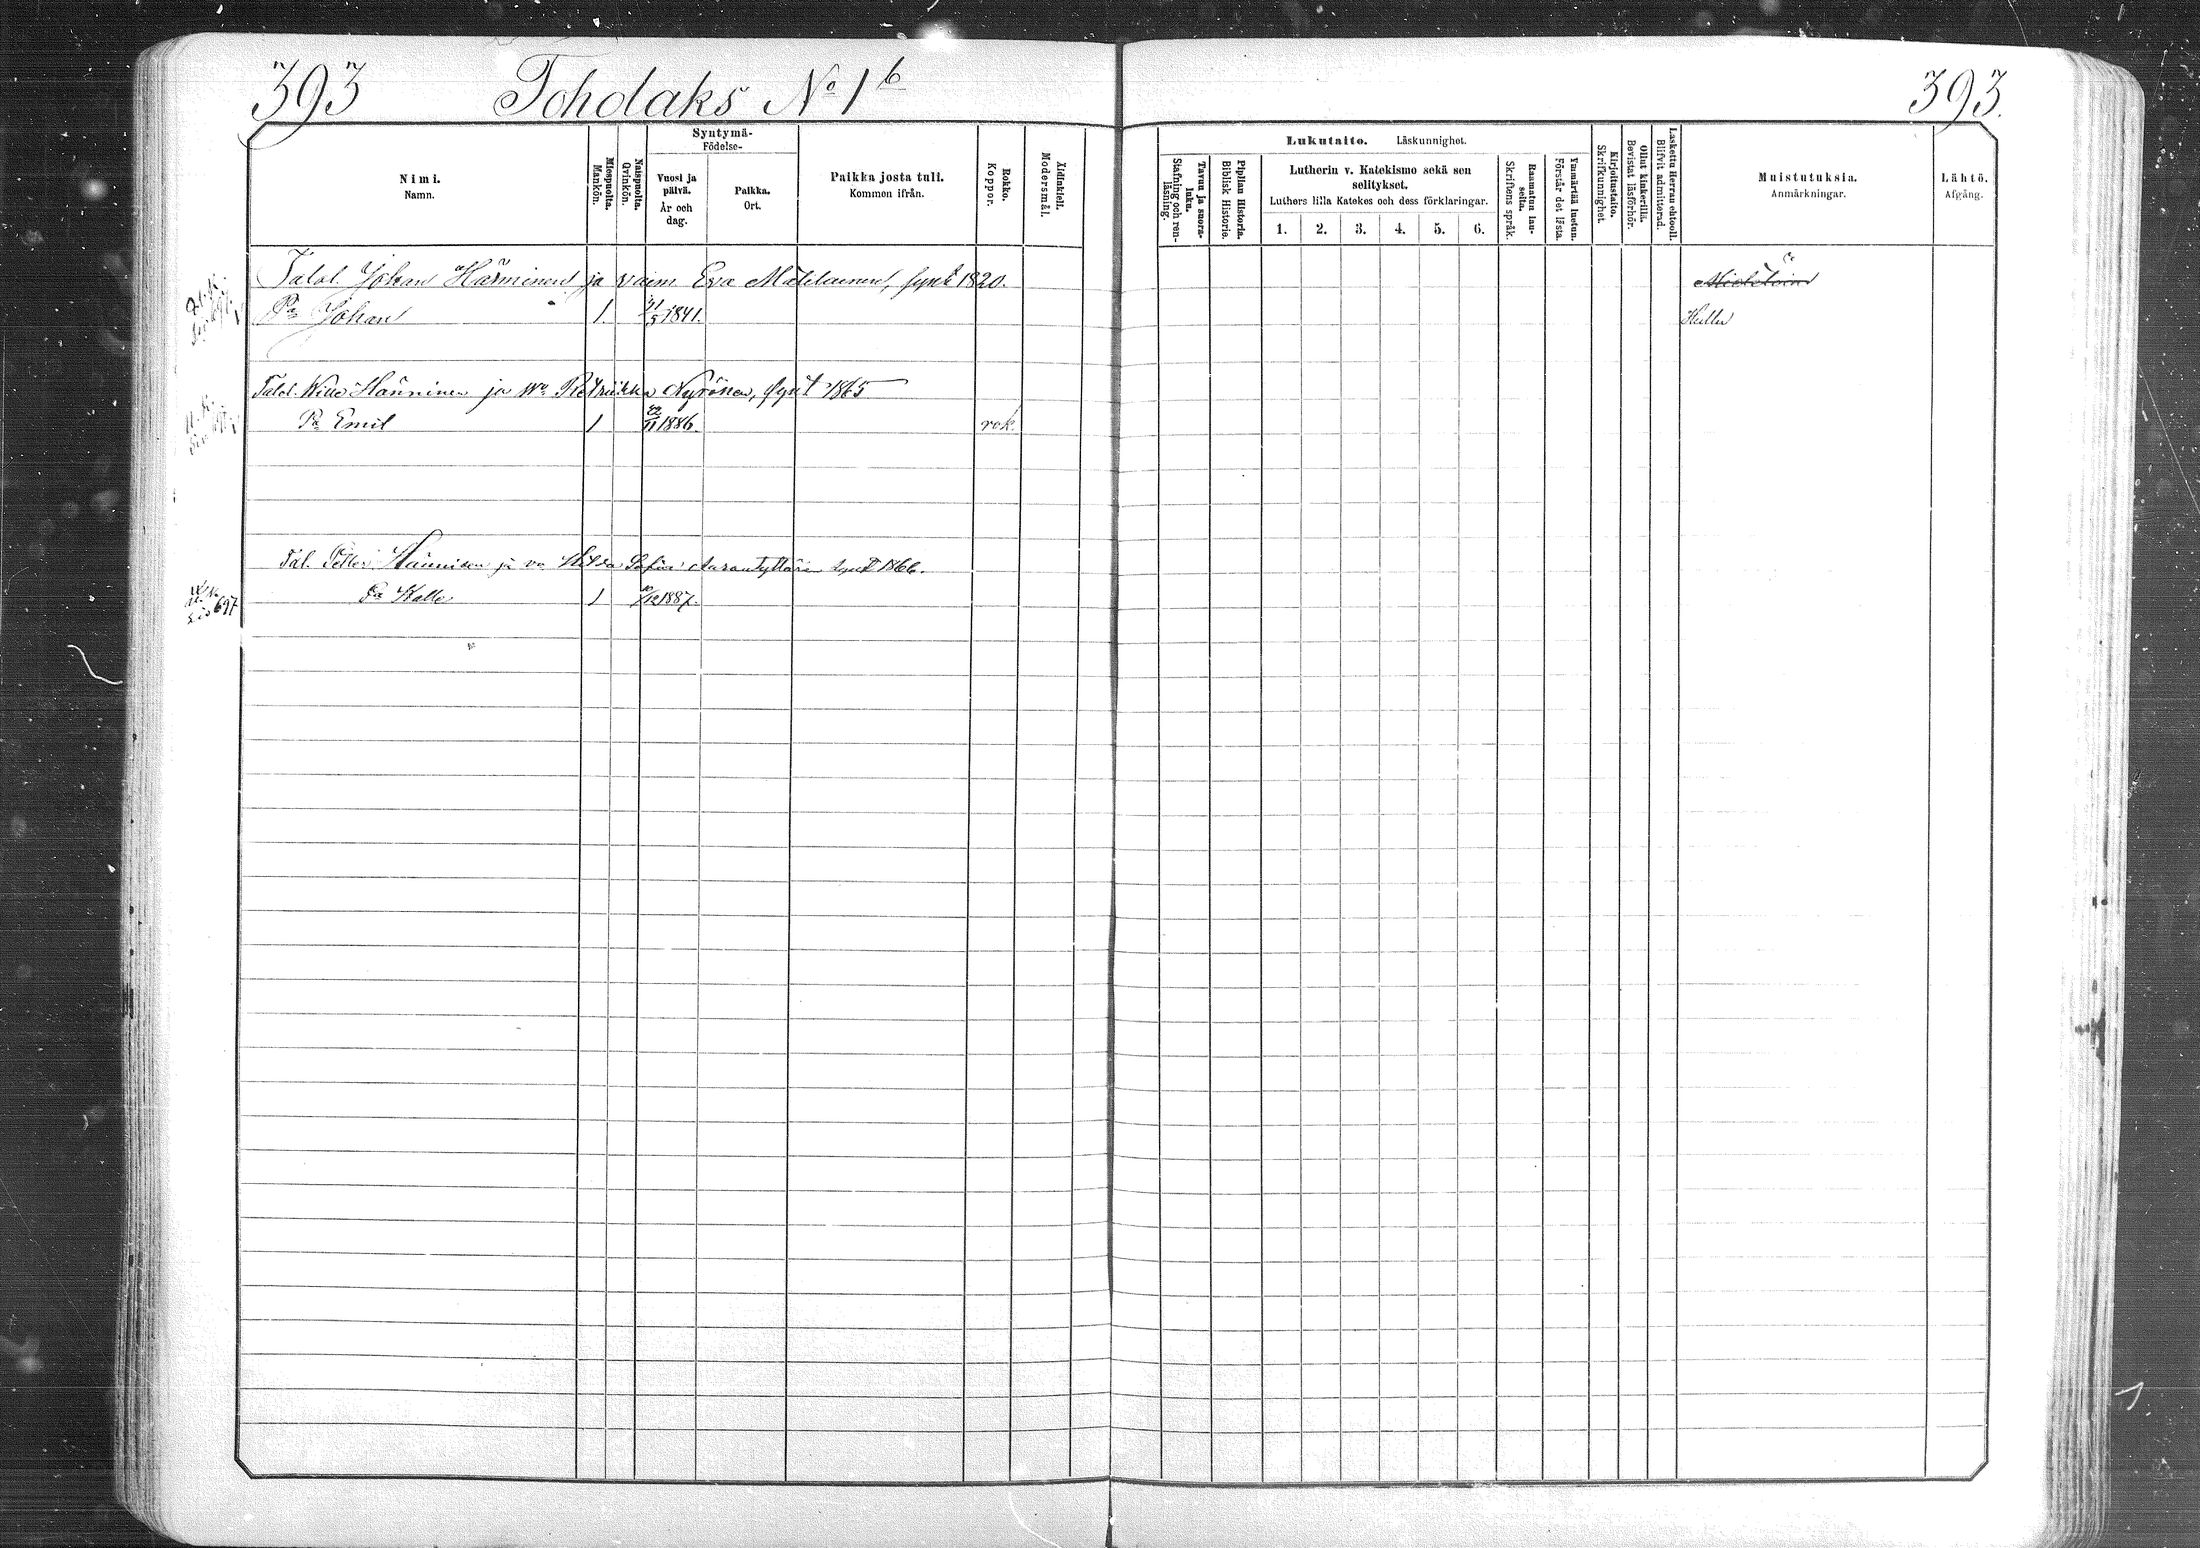 393 Toholaks No 1 b
393.
Syntymä-
Födelse-
Nimi.
Namn.
Miespuolta.
Mankön.
Naispuolta.
Qvinkön.
Vuosi ja
päivä.
År och
dag.
Paikka.
Ort.
Paikka josta tuli.
Kommen ifrån.
Rokko.
Koppor.
Äidinkieli.
Modersmål.
Lukutaito. Läskunnighet.
Tavuu ja suora-
luku.
Stafning och ren-
läsning.
Piplian Historia.
Biblisk Historie.
Lutherin v. Katekismo sekä sen
selitykset.
Luthers lilla Katekes och dess förklaringar.
1. 2. 3. 4. 5. 6.
Raamatun lau-
seita.
Skriftens språk.
Ymmärtää luetun.
Förstår det lästa.
Kirjoitustaito.
Skrifkunnighet.
Ollut kinkerillä.
Bevistat läsförhör.
Laskettu Herran ehtooll.
Blifvit admitterad.
Muistutuksia.
Anmärkningar.
Lähtö.
Afgång.
Talol. Johan Hänninen ja vaim Eva Matilainen, synt 1820.
Pa Johan 1. 31/5 1841.
Hullu
Talol. Wille Hänninen ja Wo Retriikka Nyrönen, synt 1865
Pa Emil 1 22/11 1886. rok.
Tal. Petter Hänninen ja vo Hilda Sofia synt 1866.
Pa Kalle 1 /12 1887.
697